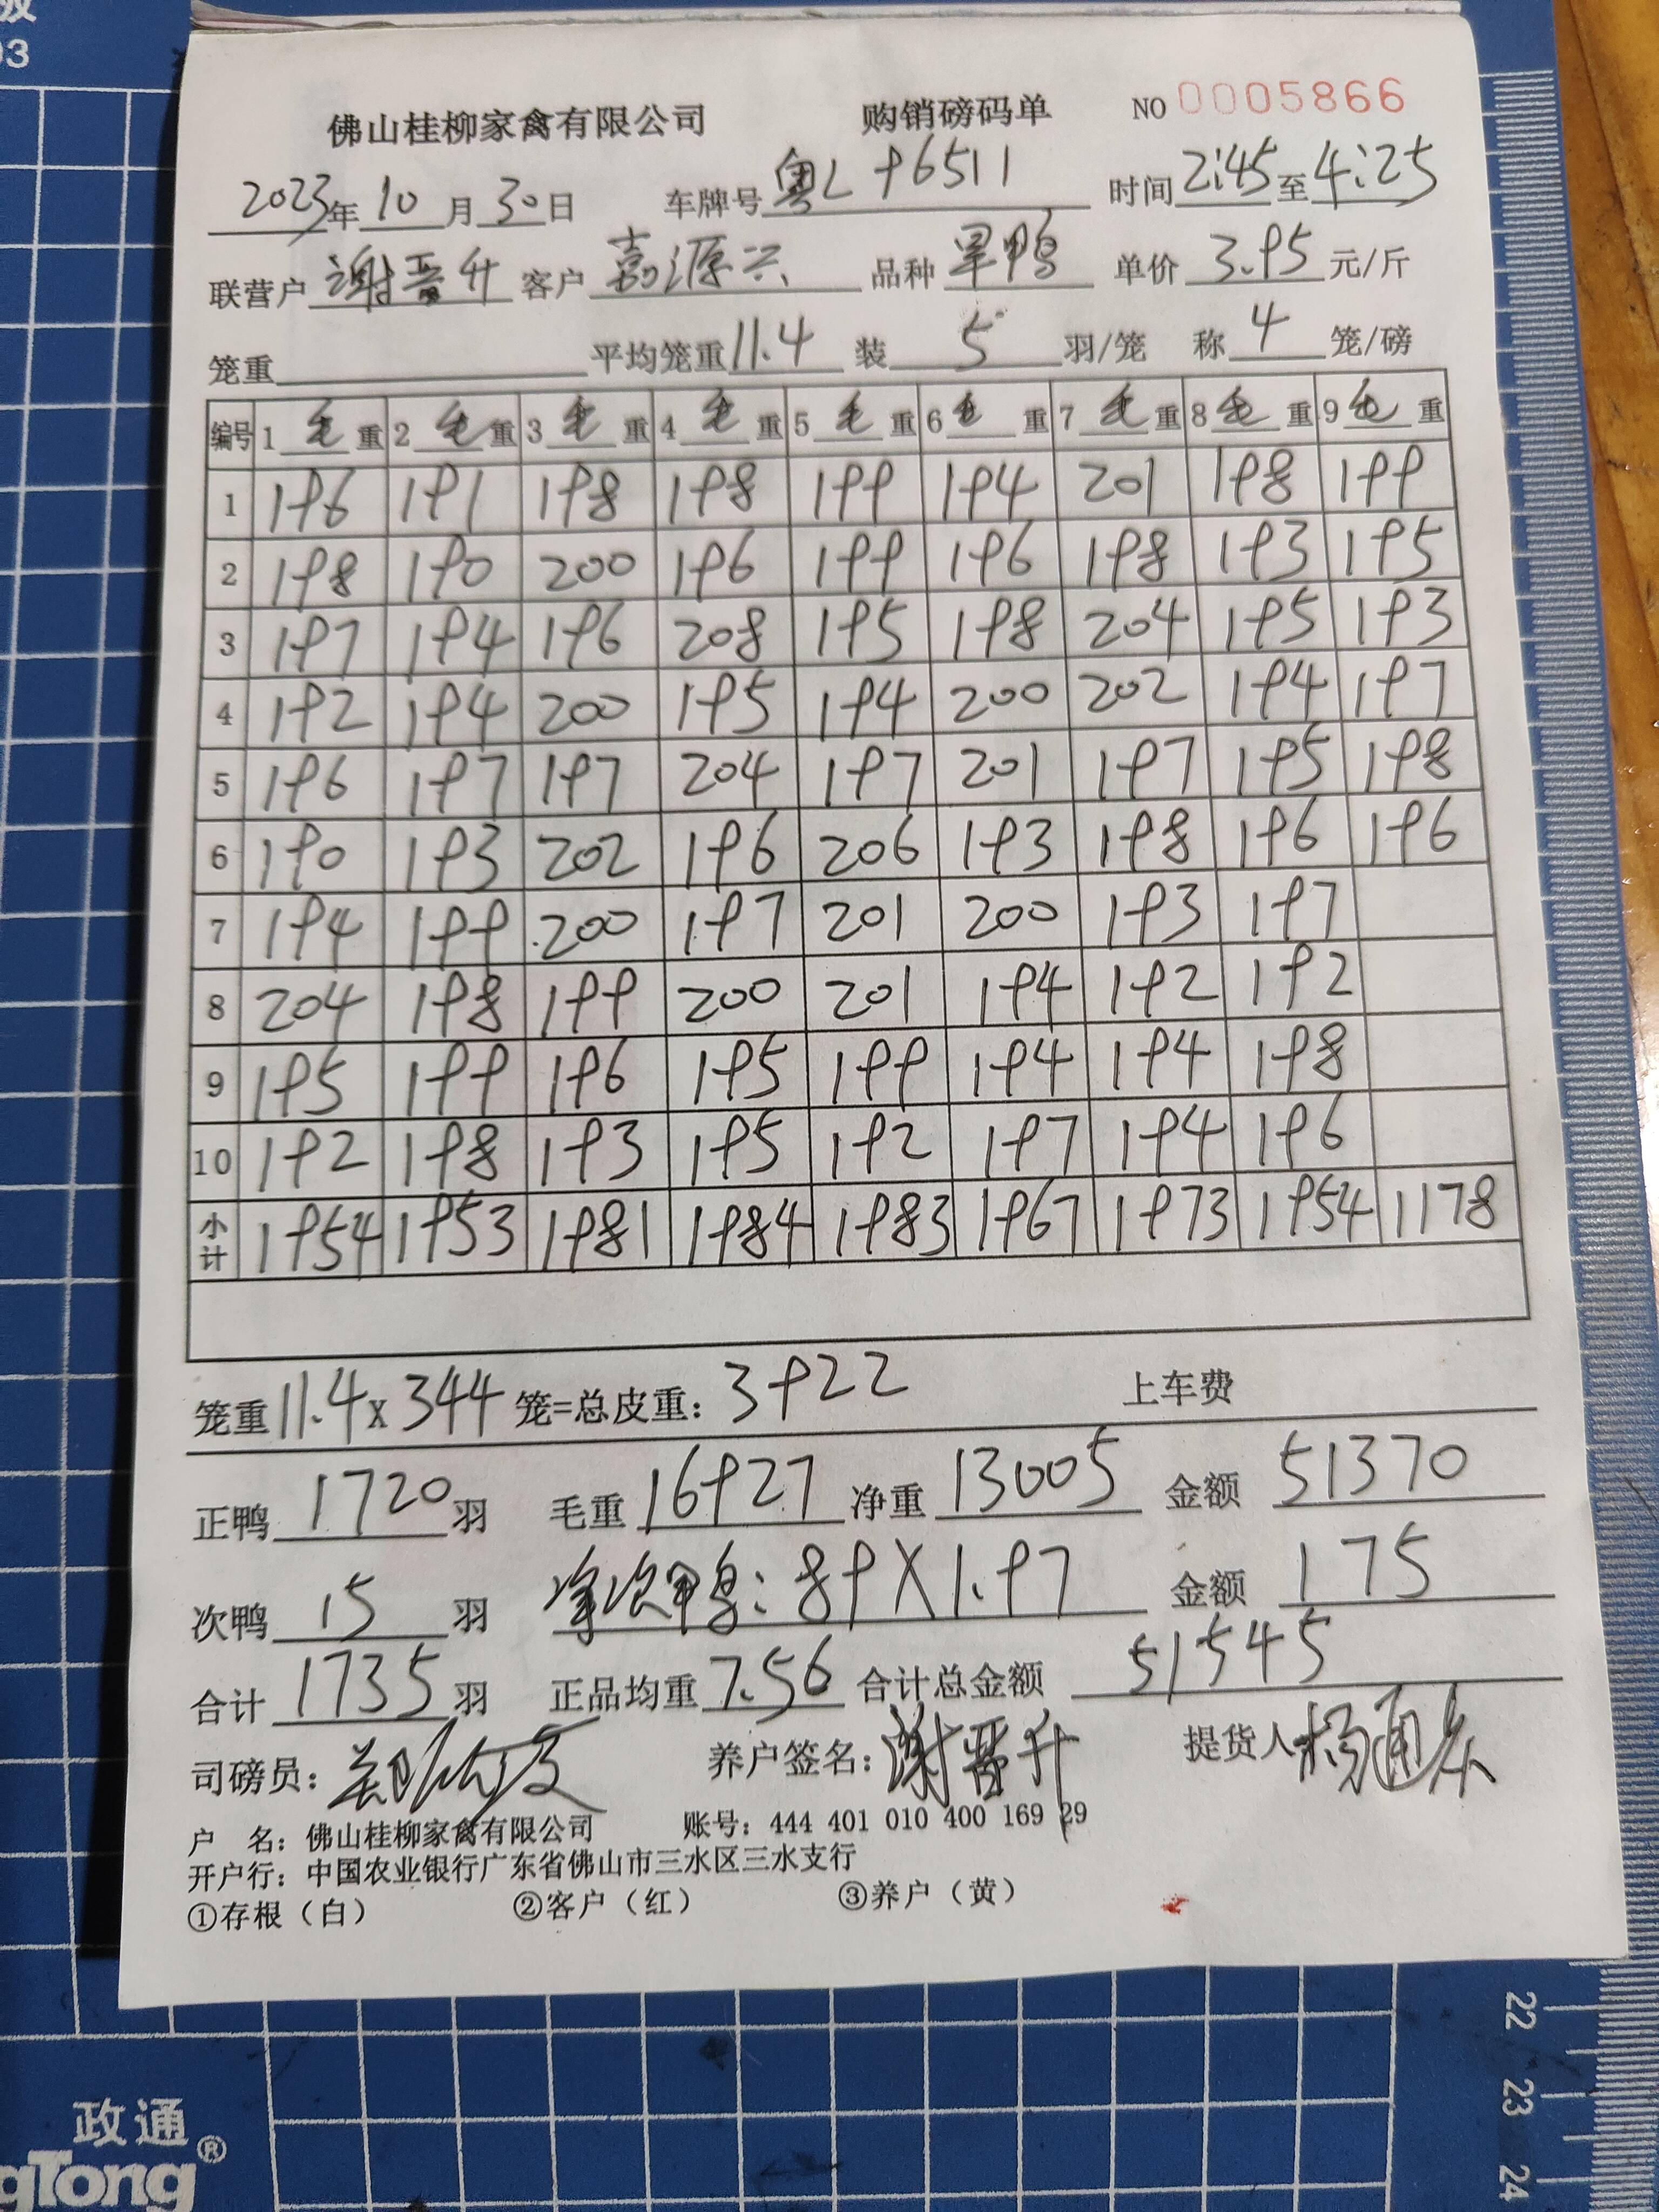 级
03
佛山桂柳家禽有限公司 购销磅码单 NO 0005866
2023年10月30日 车牌号 粤L 96511 时间 2:45 至 4:25
联营户 谢晋升 客户 嘉源兴 品种 旱鸭 单价 3.95 元/斤
笼重 平均笼重 11.4 装 5 羽/笼 称 4 笼/磅
编号 1 毛 重 2 毛 重 3 毛 重 4 毛 重 5 毛 重 6 毛 重 7 毛 重 8 毛 重 9 毛 重
1 196 191 198 198 199 194 201 198 199
2 198 190 200 196 199 196 198 193 195
3 197 194 196 208 195 198 204 195 193
4 192 194 200 195 194 200 202 194 197
5 196 197 197 204 197 201 197 195 198
6 190 193 202 196 206 193 198 196 196
7 194 199 200 197 201 200 193 197
8 204 198 199 200 201 194 192 192
9 195 199 196 195 199 194 194 198
10 192 198 193 195 192 197 194 196
小计 1954 1953 1981 1984 1983 1967 1973 1954 1178
笼重 11.4 x 344 笼=总皮重: 3922 上车费
正鸭 1720 羽 毛重 16927 净重 13005 金额 51370
次鸭 15 羽 净次鸭: 89 X 1.97 金额 175
合计 1735 羽 正品均重 7.56 合计总金额 51545
司磅员: 养户签名: 谢晋升 提货人
户 名: 佛山桂柳家禽有限公司 账号: 444 401 010 400 169 29
开户行: 中国农业银行广东省佛山市三水区三水支行
①存根(白) ②客户(红) ③养户(黄)
22
23
24
政通®
gTong